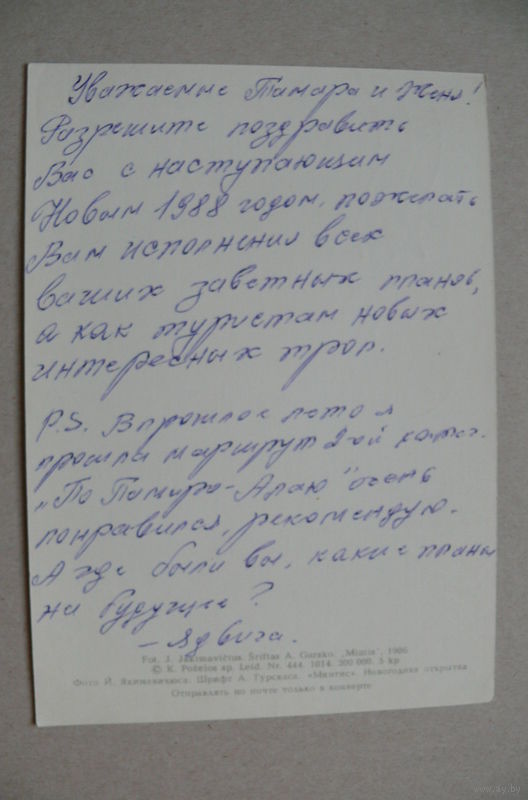 Уважаемые Тамара и Женя!
Разрешите поздравить
Вас с наступающим
Новым 1988 годом, пожелать
Вам исполнения всех
ваших заветных планов,
а как туристам новых
интересных троп.
P.S. В прошлое лето я
прошла маршрут 2-ой катег.
„По Памиро-Алаю" очень
понравился, рекомендую.
А где были вы, какие планы
на будущее?
– Ядвига.
Fot. J. Jakimavičius. Šriftas A. Gursko. „Mintis", 1986
© K. Poželos sp. Leid. Nr. 444. 1814. 200 000. 5 kp
Фото Й. Якимавичюса. Шрифт А. Гурскаса. «Минтис». Новогодняя открытка
Отправлять по почте только в конверте
www.ay.by